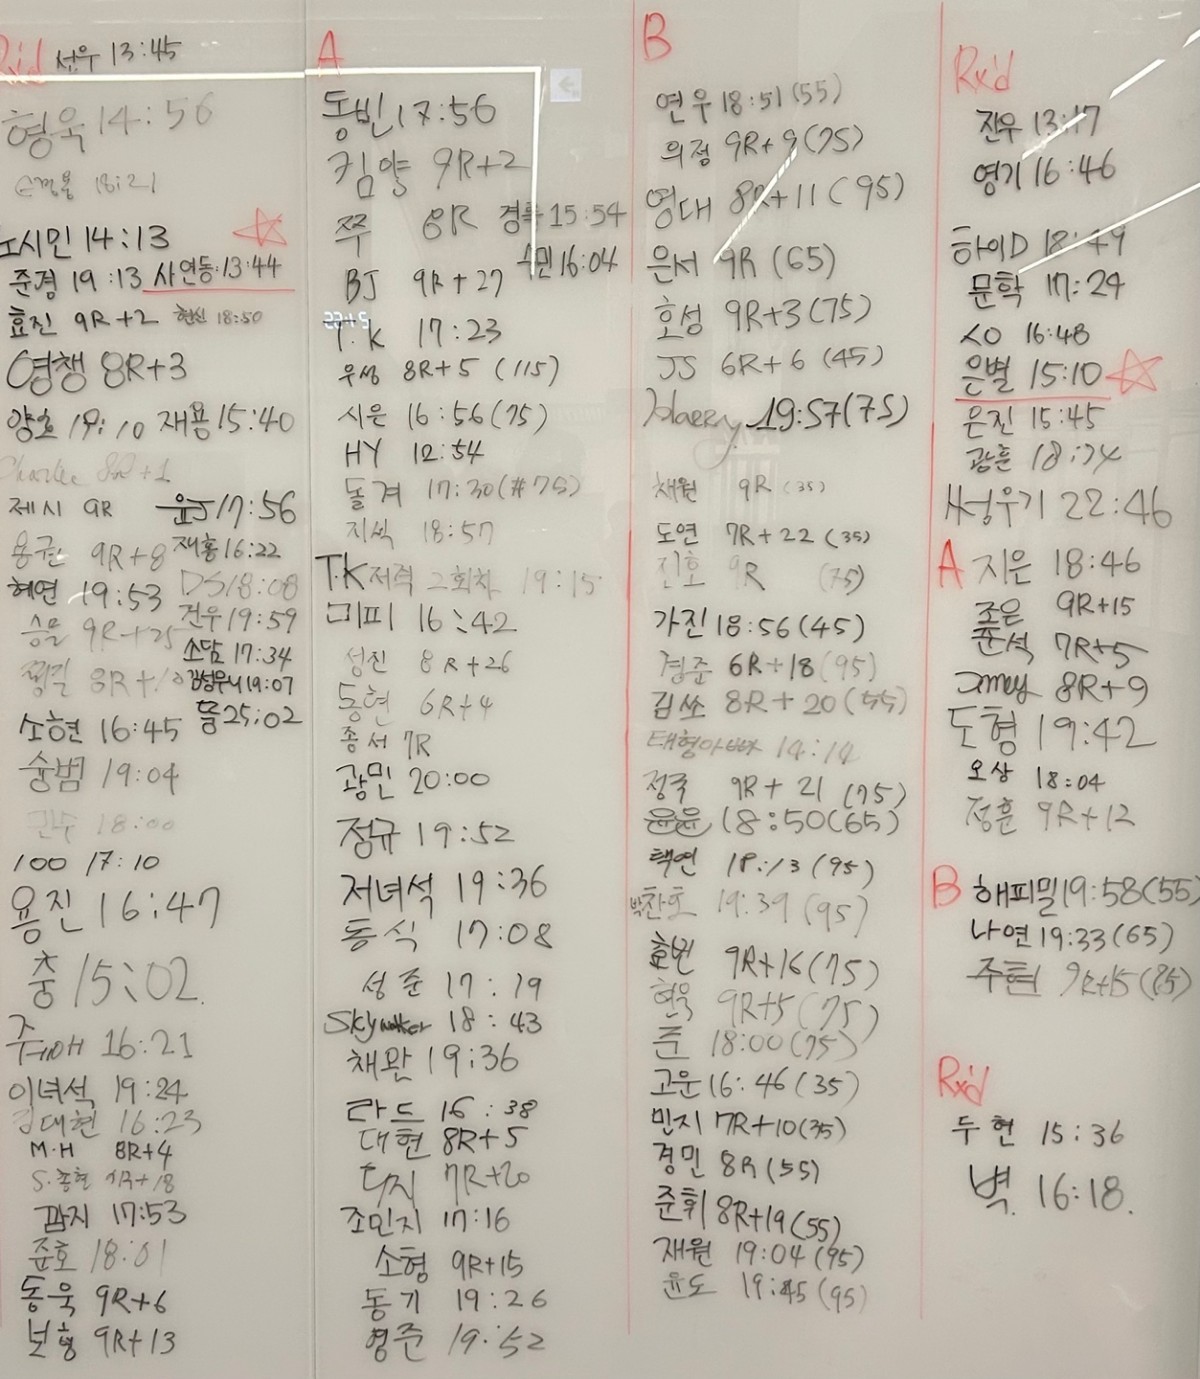 Rx'd 선우 13:45
형욱 14:56
18:21
노시민 14:13
준경 19:13 사연동:13:44
효진 9R+2 현신 18:50
영챙 8R+3
양호 19:10 재용 15:40
Charlee 8R+1
제시 9R 윤J 17:56
용권 9R+8 재홍 16:22
혜연 19:53 DS 18:08
승물 9R+25 건우 19:59
소담 17:34
8R+10 김성우니 19:07
소현 16:45 뚬 25:02
숭범 19:04
18:00
100 17:10
용진 16:47
충 15:02.
16:21
이녀석 19:24
김대현 16:23
M·H 8R+4
S.종현 9R+18
깜지 17:53
준호 18:01
동욱 9R+6
보형 9R+13
A
동빈 17:56
킴양 9R+2
쭈 8R 경록 15:54
BJ 9R+27 16:04
T.K 17:23
우성 8R+5 (115)
시은 16:56(75)
HY 12:54
돌격 17:30(#75)
지석 18:57
T.K 저격 2회차 19:15
미피 16:42
성진 8R+26
동현 6R+4
종서 7R
광민 20:00
정규 19:52
저녀석 19:36
동식 17:08
성준 17:19
Skywalker 18:43
채완 19:36
라드 16:38
대현 8R+5
7R+20
조민지 17:16
소형 9R+15
동기 19:26
영준 19:52
B
연우 18:51(55)
의정 9R+9(75)
영대 8R+11(95)
은서 9R (65)
호성 9R+3(75)
JS 6R+6 (45)
Harry 19:57(75)
채원 9R (35)
도연 7R+22 (35)
진호 9R (75)
가진 18:56(45)
경준 6R+18(95)
김쏘 8R+20(55)
태형아빠 14:14
정국 9R+21 (75)
윤윤 18:50(65)
택연 18:13 (95)
박찬호 19:39 (95)
효빈 9R+16(75)
현욱 9R+5(75)
준 18:00(75)
고운 16:46(35)
민지 7R+10(35)
경민 8R(55)
준휘 8R+19(55)
재원 19:04(95)
윤도 19:45(95)
Rx'd
진우 13:17
영기 16:46
하이D 18:49
문학 17:24
16:48
은별 15:10
은진 15:45
광훈 18:24
서성우기 22:46
A 지은 18:46
조은 9R+15
윤석 7R+5
amey 8R+9
도형 19:42
오상 18:04
정훈 9R+12
B 해피밀 19:58(55)
나연 19:33(65)
주현 9R+15(85)
Rx'd
두현 15:36
벽. 16:18.